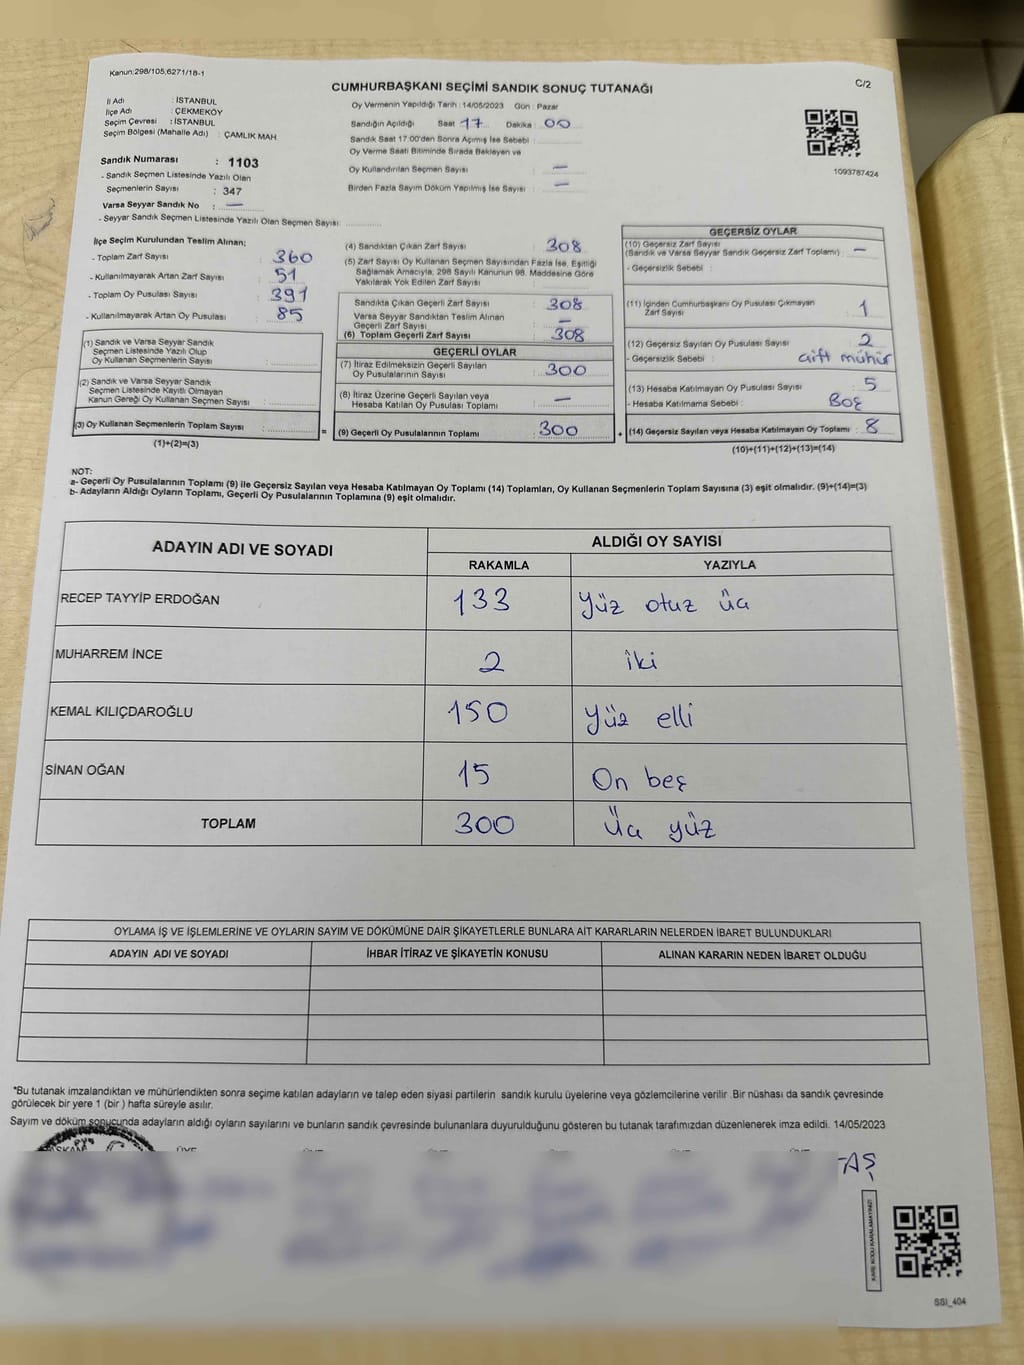 Kanun;298/105,6271/18-1
C/2
CUMHURBAŞKANI SEÇİMİ SANDIK SONUÇ TUTANAĞI
İl Adı : İSTANBUL
İlçe Adı : ÇEKMEKÖY
Seçim Çevresi : İSTANBUL
Seçim Bölgesi (Mahalle Adı) : ÇAMLIK MAH.
Sandık Numarası : 1103
- Sandık Seçmen Listesinde Yazılı Olan
Seçmenlerin Sayısı : 347
Varsa Seyyar Sandık No : —
- Seyyar Sandık Seçmen Listesinde Yazılı Olan Seçmen Sayısı
Oy Vermenin Yapıldığı Tarih : 14/05/2023 Gün : Pazar
Sandığın Açıldığı Saat 17 Dakika : 00
Sandık Saat 17:00'den Sonra Açımış İse Sebebi :
Oy Verme Saati Bitiminde Sırada Bekleyen ve
Oy Kullandırılan Seçmen Sayısı : —
Birden Fazla Sayım Döküm Yapılmış İse Sayısı : —
1093787424
İlçe Seçim Kurulundan Teslim Alınan;
- Toplam Zarf Sayısı : 360
- Kullanılmayarak Artan Zarf Sayısı : 51
- Toplam Oy Pusulası Sayısı : 391
- Kullanılmayarak Artan Oy Pusulası : 85
(1) Sandık ve Varsa Seyyar Sandık
Seçmen Listesinde Yazılı Olup
Oy Kullanan Seçmenlerin Sayısı :
(2) Sandık ve Varsa Seyyar Sandık
Seçmen Listesinde Kayıtlı Olmayan
Kanun Gereği Oy Kullanan Seçmen Sayısı :
(3) Oy Kullanan Seçmenlerin Toplam Sayısı :
(1)+(2)=(3)
(4) Sandıktan Çıkan Zarf Sayısı : 308
(5) Zarf Sayısı Oy Kullanan Seçmen Sayısından Fazla İse, Eşitliği
Sağlamak Amacıyla, 298 Sayılı Kanunun 98. Maddesine Göre
Yakılarak Yok Edilen Zarf Sayısı :
Sandıkta Çıkan Geçerli Zarf Sayısı : 308
Varsa Seyyar Sandıktan Teslim Alınan
Geçerli Zarf Sayısı : —
(6) Toplam Geçerli Zarf Sayısı : 308
GEÇERLİ OYLAR
(7) İtiraz Edilmeksizin Geçerli Sayılan
Oy Pusulalarının Sayısı : 300
(8) İtiraz Üzerine Geçerli Sayılan veya
Hesaba Katılan Oy Pusulası Toplamı : —
= (9) Geçerli Oy Pusulalarının Toplamı : 300
GEÇERSİZ OYLAR
(10) Geçersiz Zarf Sayısı
(Sandık ve Varsa Seyyar Sandık Geçersiz Zarf Toplamı) : —
- Geçersizlik Sebebi :
(11) İçinden Cumhurbaşkanı Oy Pusulası Çıkmayan
Zarf Sayısı : 1
(12) Geçersiz Sayılan Oy Pusulası Sayısı : 2
- Geçersizlik Sebebi : Çift mühür
(13) Hesaba Katılmayan Oy Pusulası Sayısı : 5
- Hesaba Katılmama Sebebi : Boş
+ (14) Geçersiz Sayılan veya Hesaba Katılmayan Oy Toplamı : 8
(10)+(11)+(12)+(13)=(14)
NOT:
a- Geçerli Oy Pusulalarının Toplamı (9) ile Geçersiz Sayılan veya Hesaba Katılmayan Oy Toplamı (14) Toplamları, Oy Kullanan Seçmenlerin Toplam Sayısına (3) eşit olmalıdır. (9)+(14)=(3)
b- Adayların Aldığı Oyların Toplamı, Geçerli Oy Pusulalarının Toplamına (9) eşit olmalıdır.
ADAYIN ADI VE SOYADI ALDIĞI OY SAYISI
RAKAMLA YAZIYLA
RECEP TAYYİP ERDOĞAN 133 Yüz otuz üç
MUHARREM İNCE 2 iki
KEMAL KILIÇDAROĞLU 150 Yüz elli
SİNAN OĞAN 15 On beş
TOPLAM 300 Üç yüz
OYLAMA İŞ VE İŞLEMLERİNE VE OYLARIN SAYIM VE DÖKÜMÜNE DAİR ŞİKAYETLERLE BUNLARA AİT KARARLARIN NELERDEN İBARET BULUNDUKLARI
ADAYIN ADI VE SOYADI İHBAR İTİRAZ VE ŞİKAYETİN KONUSU ALINAN KARARIN NEDEN İBARET OLDUĞU
*Bu tutanak imzalandıktan ve mühürlendikten sonra seçime katılan adayların ve talep eden siyasi partilerin sandık kurulu üyelerine veya gözlemcilerine verilir .Bir nüshası da sandık çevresinde
görülecek bir yere 1 (bir ) hafta süreyle asılır.
Sayım ve döküm sonucunda adayların aldığı oyların sayılarını ve bunların sandık çevresinde bulunanlara duyurulduğunu gösteren bu tutanak tarafımızdan düzenlenerek imza edildi. 14/05/2023
ÜYE
TAŞ
KARE KODU KARALAMAYINIZ!
SSI_404